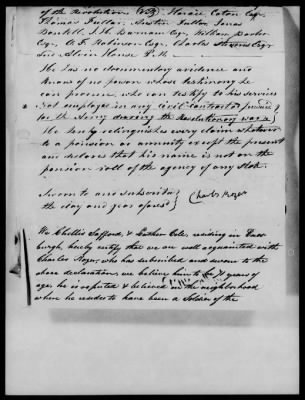 of the Revolution Horace Eaton Esqr
Thomas Fuller, Austin Fuller Jonas
Boutell, J. H. Farnam Esqr, William Barber
Esqr, E. F. Robinson Esqr, Charles Stevens Esqr
and Alvin House
He has no documentary evidence and
knows of no person whose testimony he
can procure, who can testify to his services
not employed in any Civil Contract or
for the Army during the Revolutionary war
He hereby relinquishes every claim whatever
to a pension or annuity except the present
and declares that his name is not on the
pension roll of the agency of any State.
Sworn to and subscribed
the day and year aforesd
Charles Rozer
We Challis Safford, & Cole, residing in Enos-
burgh, hereby certify that we are well acquainted with
Charles Rozer, who has subscribed and sworn to the
above declaration, we believe him to be 71 years of
age, he is reputed & believed in the neighborhood
where he resides to have been a Soldier of the